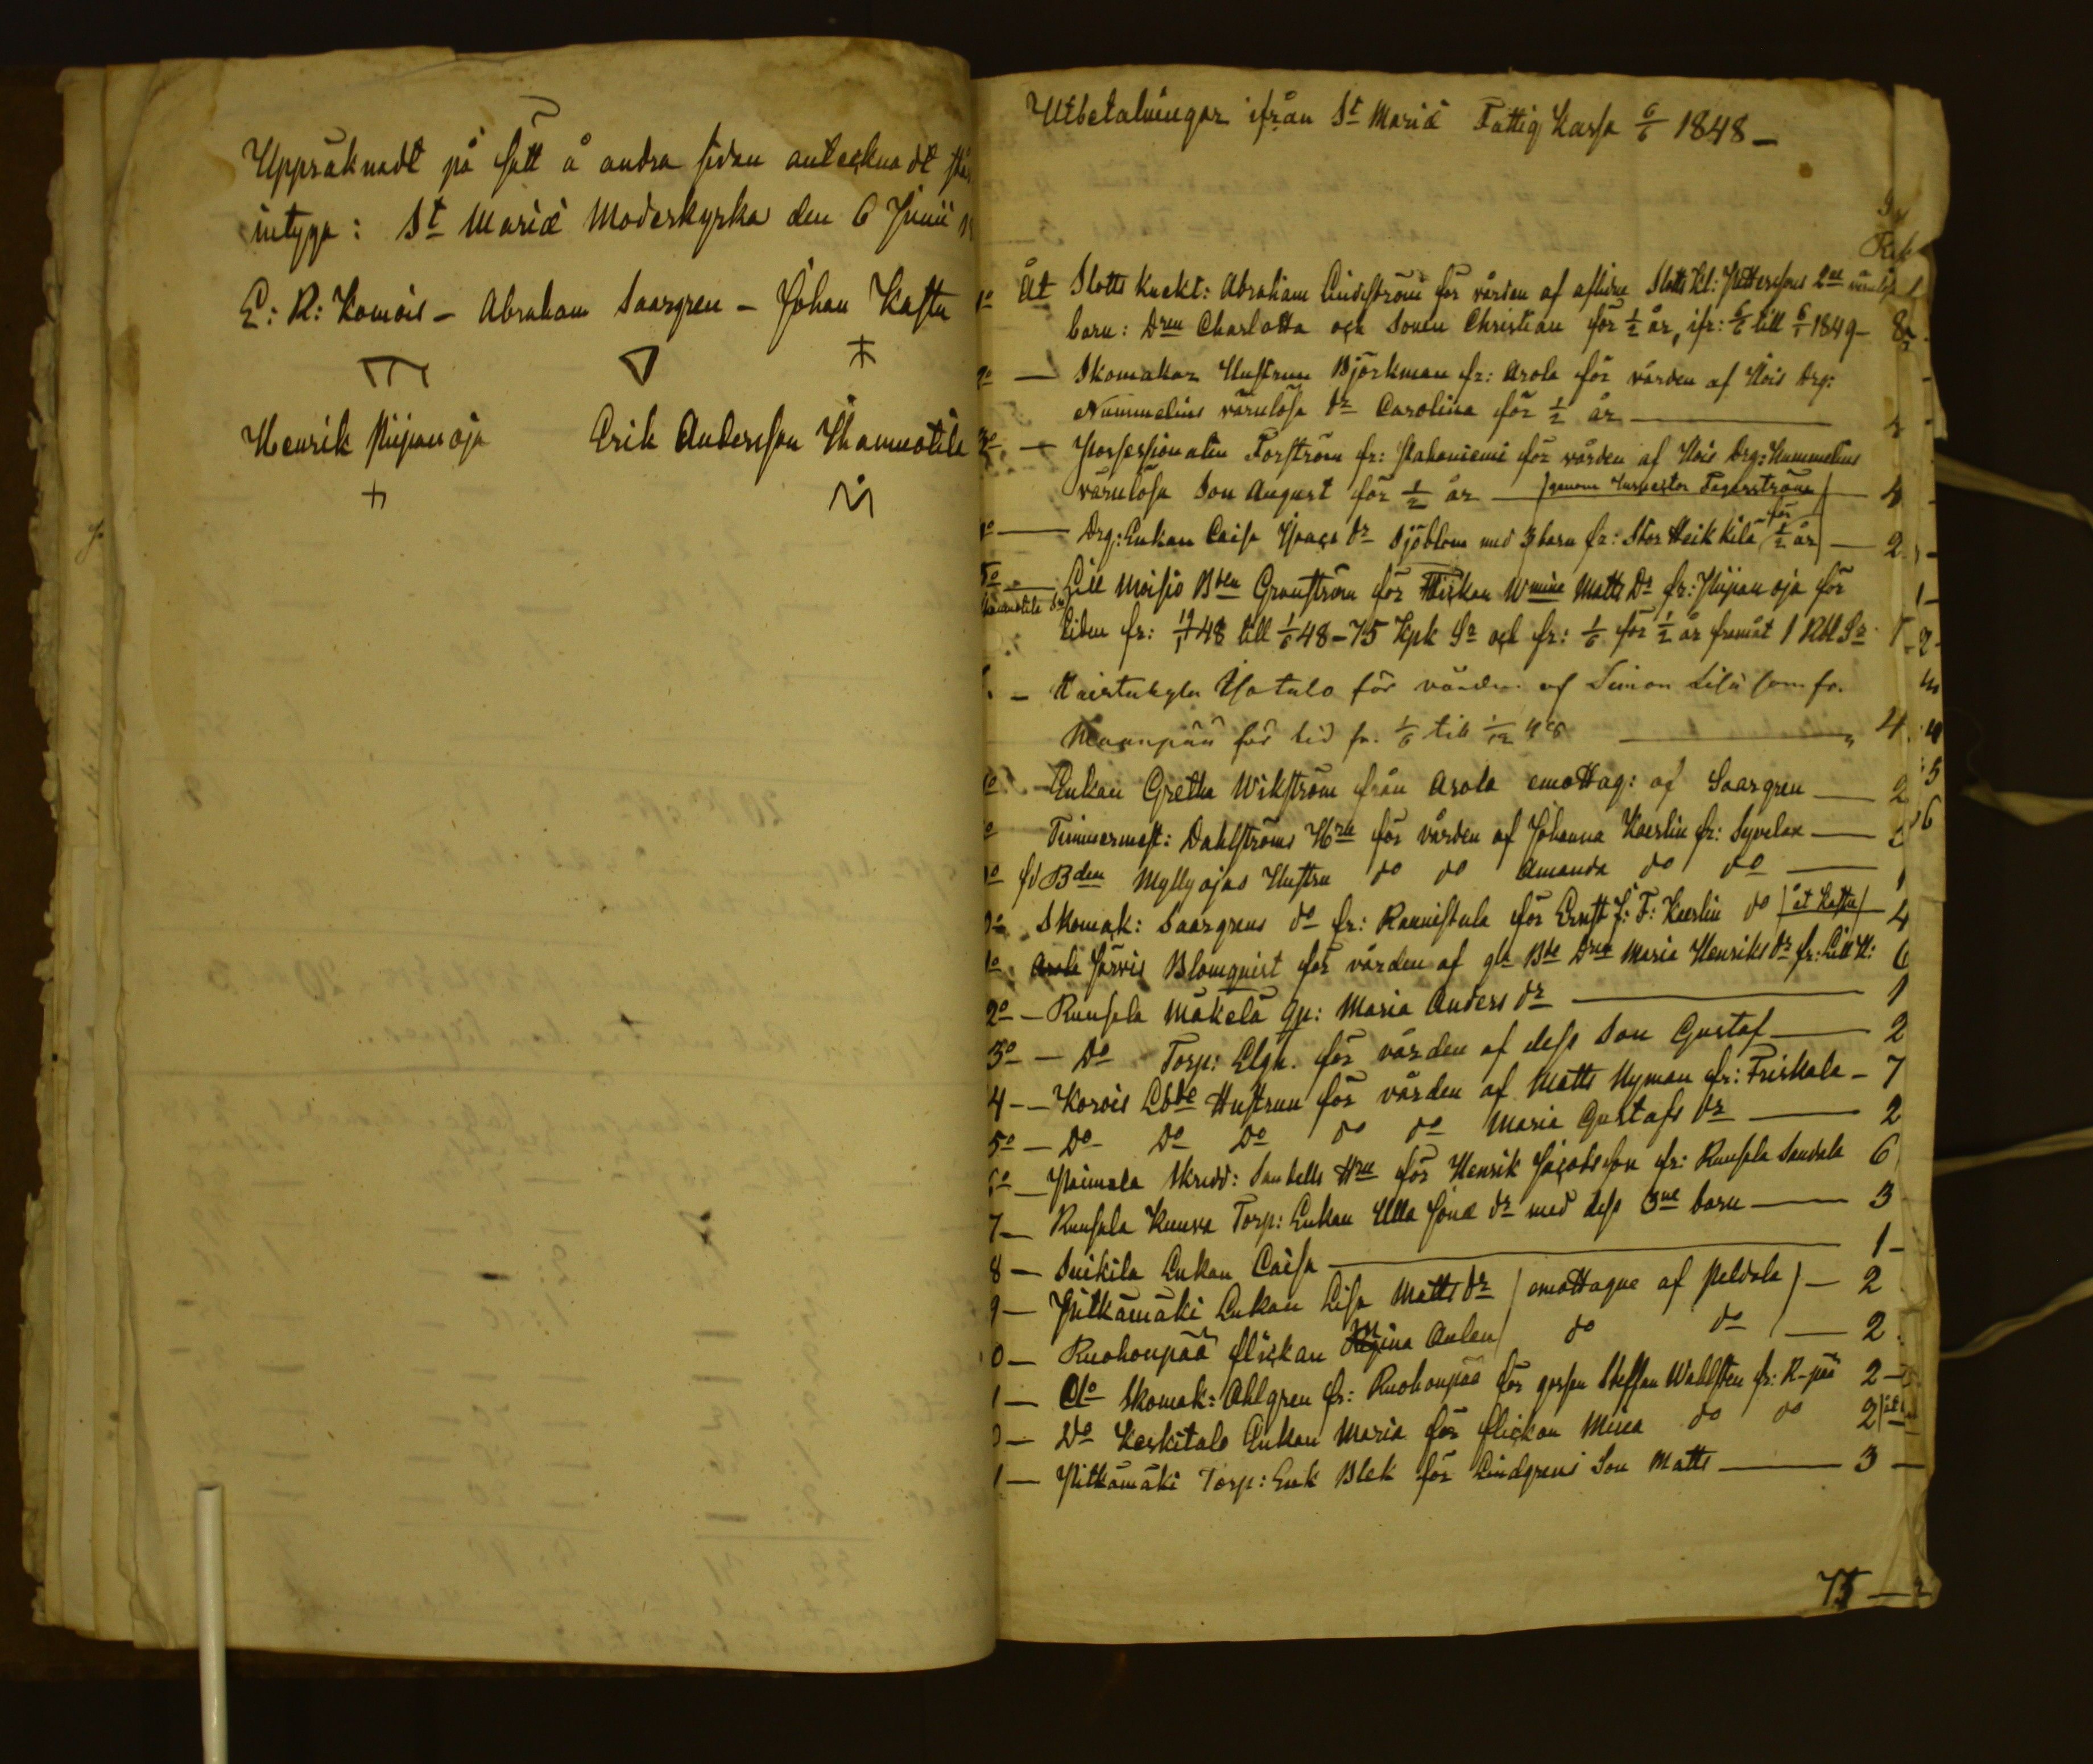 Uppräknadt på sätt å andra sidan antecknadt
intyga: St Mariæ Moderkyrka den 6 Junii
E: R: Komois - Abraham Saargren - Johan Kastu
Henrik Piipanoja Erik Andersson Hannotila
Utbetalningar ifrån St Mariæ Fattig Kassa 6/6 1848 -
1o Åt Slotts Knekt: Abraham Lindström för vården af aflidne Slotts Kt: Petterssons 2ne värnlösa
barn: Dren Charlotta och Sonen Christian för 1/2 år, ifr: 6/6 till 6/1 1849 - 8
2o — Skomakar Hustrun Björkman fr: Arola för vården af Nois Drg:
Nummelins värnlösa dr Carolina för 1/2 år — 4
3o — Forström fr: Pahaniemi för vården af Nois Drg: Nummelins
värnlösa Son August för 1/2 år — (genom Inspector Fagerström) — 4
— Drg: Enkan Caisa Isaacs dr Sjöblom med 3 barn fr: Stor Heikkilä för 1/2 år — 2
5o — Lill Moisio Bden Granström för flickan Wmina Matts Dr fr: Piipanoja för
tiden fr: 48 till 1/6 48 - 75 Kpk Sr och fr: 1/6 för 1/2 år framåt 1 Rbl Sr
— Yatulo för vården af Simon
för tid fr. 1/6 till 1/12 48 — 4
— Enkan Gretha Wikström från Arola emottag: af Saargren — 2
Timmermest: Dahlströms Hru för vården af Johanna Kaerlin fr: —
fd Bden Myllyojas Hustru do do Amanda do do —
Skomak: Saargrens do fr: Raunistula för Ernst J: F: Kaerlin do (åt Kastu) 4
Järvis Blomquist för vården af gla Bde Dren Maria Henriks dr fr: Lill H: 6
2o — Ruusala Mäkelä Gp: Maria Anders dr — 1
3o — Do Torp: Elgh. för vården af dess Son Gustaf — 2
4 — Korois Lbde Hustrun för vården af Matts Nyman fr: Friskala - 7
5o — Do Do Do do do Maria Gustafs dr — 2
6o — Paimala Skredd: Sandells Hru för Henrik Jacobsson fr: Ruusala Sandala 6
7 — Ruusala Kuuva Torp: Enkan Ulla Jonæ dr med dess 3ne barn — 3
8 — Suikila Enkan Caisa — 1 -
9 — Pitkämäki Enkan Lisa Matts dr (emottagne af Peldola) — 2
0 — Ruohonpää flickan Mina Aulen do do — 2
1 — Do Skomak: Ahlgren fr: Ruohonpää för gossen Steffan Wahlsten fr: R-pää 2 —
0 — Do Keskitalo Enkan Maria för flickan Mina do do 2
1 — Pitkämäki Torp: Enk Blek för Lindgrens Son Matts — 3 —
75 —